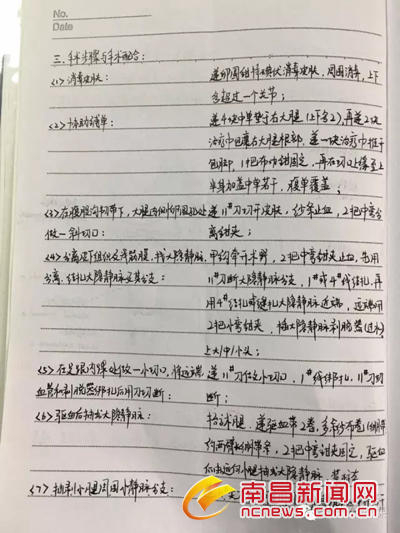 No.
Date
三. 手术步骤与手术配合:
<1>消毒皮肤: 递卵圆钳持碘伏消毒皮肤, 周围消毒, 上下
各超过一个关节;
<2>协助铺单: 递4块中单垫于右大腿(上下各2), 再递2块
治疗巾包裹右大腿根部, 递一块治疗巾推于
包脚, 1把布巾钳固定, 再在切口上缘至上
半身加盖中单若干, 腹单覆盖;
<3>在腹股沟韧带下, 大腿内侧 处 递11#刀切开皮肤, 纱条止血, 2把中弯
做一斜切口: 弯钳夹;
<4>分离皮下组织及浅筋膜, 找大隐静脉 甲钩牵开术野, 2把中弯钳夹止血, 先用
分离, 结扎大隐静脉及其分支: 11#刀断大隐静脉分支, 1#或4#线结扎, 再
用4#结扎或缝扎大隐静脉近端, 远端用
2把小弯钳夹, 插大隐静脉剥脱器(过水)
上大/中/小头;
<5>在足跟内踝处做一小切口, 将远端 递11#刀作小切口, 1#线绑扎, 11#刀切
血管和剥脱器绑扎后用刀切断: 断;
<6>驱血后抽出大隐静脉: 抬高术腿, 递驱血带2卷, 多条纱布卷
两 , 2把中弯钳夹固定, 驱血
后由远向心腿抽出大隐静脉
<7>抽剥小腿周围小静脉分支:
南昌新闻网
ncnews.com.cn